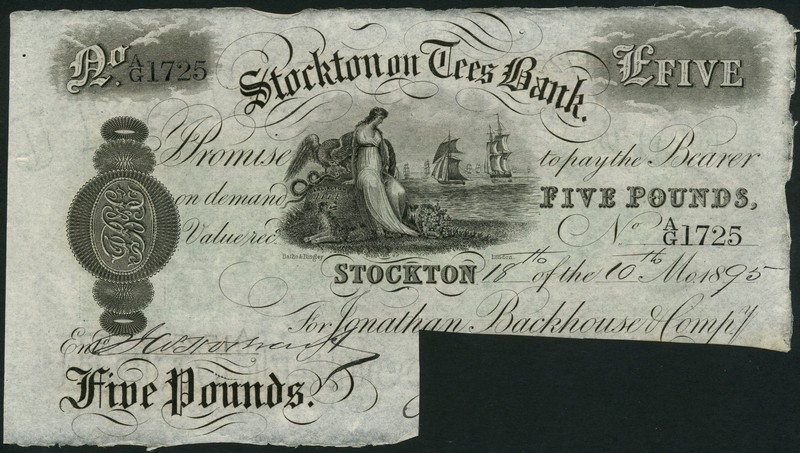 No. A/G 1725
Stockton on Tees Bank.
£FIVE
I Promise to pay the Bearer
on demand FIVE POUNDS,
Value recd. No A/G 1725
STOCKTON 18th of the 10th Mo. 1895
For Jonathan Backhouse & Compy
Entd
Five Pounds.